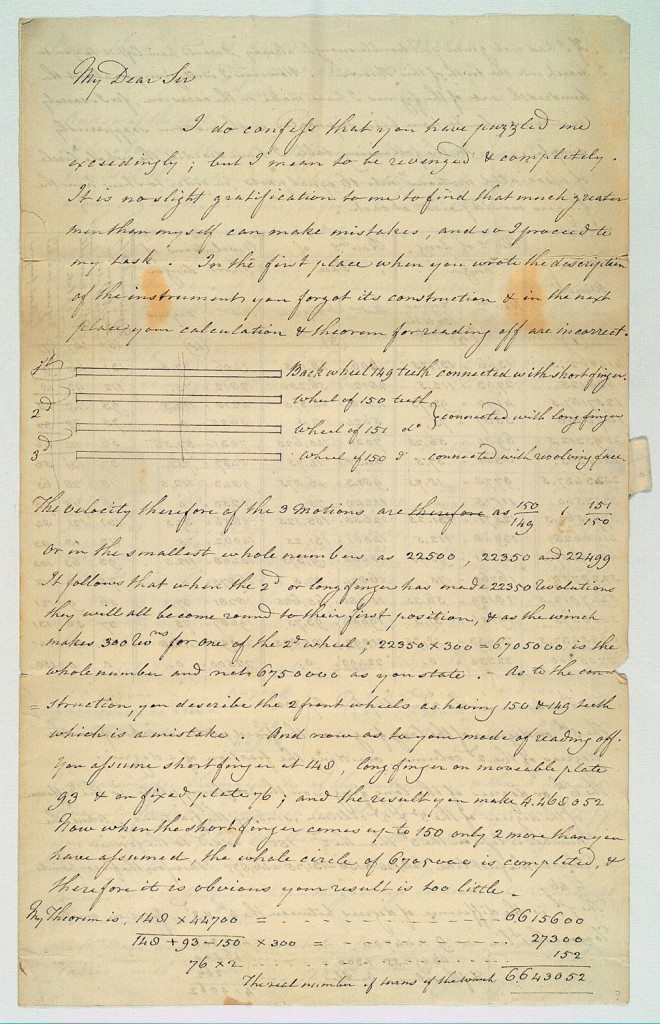 My Dear Sir
I do confess that you have puzzled me
exceedingly; but I mean to be revenged & completely.
It is no slight gratification to me to find that much greater
men than myself can make mistakes, and so I proceed to
my task. In the first place when you wrote the description
of the instrument you forgot its construction & in the next
place your calculation & theorem for reading off are incorrect.
1st Back wheel 149 teeth connected with short finger.
2d wheel of 150 teeth
wheel of 151 do } connected with long finger
3d wheel of 150 d connected with revolving face.
The velocity therefore of the 3 motions are therefore as 150/149 , 151/150
or in the smallest whole numbers as 22500, 22350 and 22499
It follows that when the 2d or long finger has made 22350 revolutions
they will all become round to their first position, & as the winch
makes 300 revns for one of the 2d wheel; 22350 x 300 = 6705000 is the
whole number and not 6750000 as you state. - As to the con
= struction, you describe the 2 front wheels as having 150 & 149 teeth
which is a mistake. And now as to your mode of reading off.
You assume short finger at 148, long finger on moveable plate
93 & on fixed plate 76; and the result you make 4.468052
Now when the short finger comes up to 150 only 2 more than you
have assumed, the whole circle of 6705000 is completed, &
therefore it is obvious your result is too little. -
My Theorem is, 148 x 44700 = 6615600
148 + 93 - 150 x 300 = 27300
76 x 2 152
The real number of turns of the winch 6643052